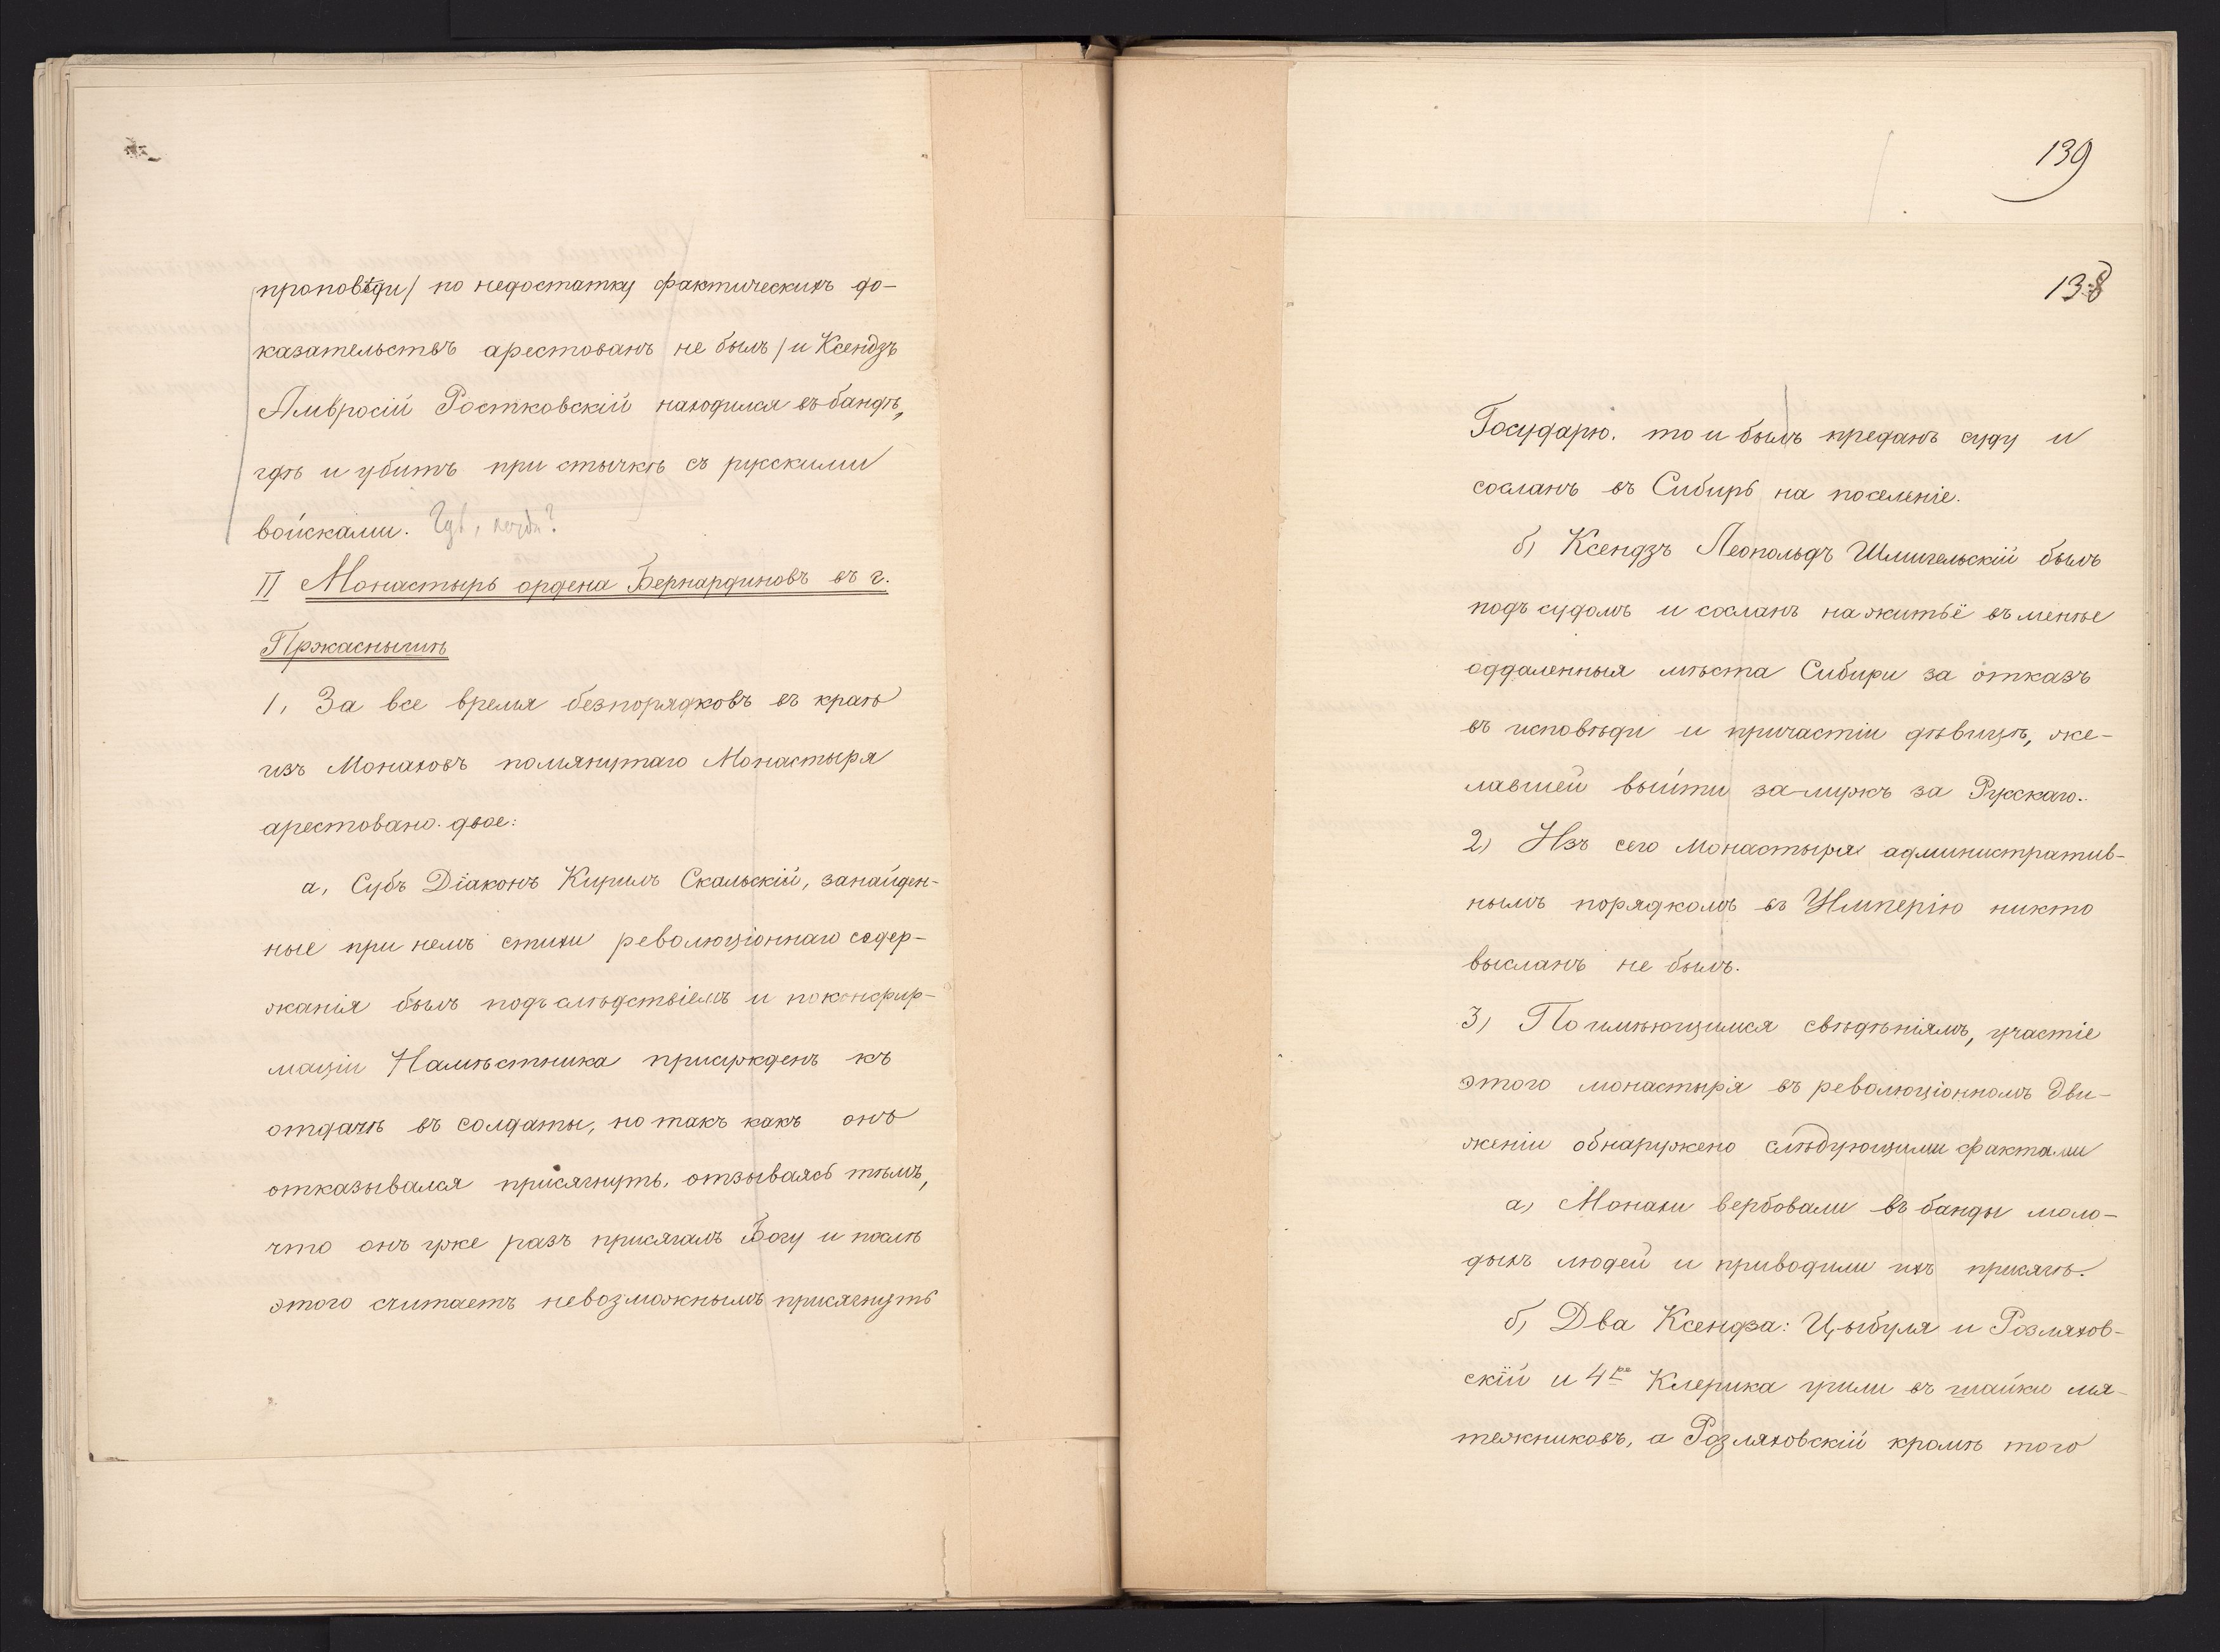 проповѣди/ по недостатку фактическихъ до-
казательствъ арестованъ не былъ/ и Ксендзъ
Амвросій Ростковскій находился въ бандѣ,
гдѣ и убитъ при стычкѣ съ рускими
войсками. Гдѣ, когда?
II Монастырь ордена Бернардиновъ въ г.
Пржаснышѣ
1, За все время безпорядковъ въ краѣ
изъ Монаховъ помянутаго Монастыря
арестовано двое:
а, Субъ Діаконъ Кирилъ Скальскій, за найден-
ные при немъ стихи революціоннаго содер-
жанія былъ подъ слѣдствіемъ и по конфир-
маціи Намѣстника присужденъ къ
отдачѣ въ солдаты, но такъ какъ онъ
отказывался присягнуть, отзываясь тѣмъ,
что онъ уже разъ присягалъ Богу и послѣ
этого считаетъ невозможнымъ присягнуть
139
138
Государю. то и былъ преданъ суду и
сосланъ въ Сибирь на поселеніе.
б) Ксендзъ Леопольдъ Шмигельскій былъ
подъ судомъ и сосланъ на житьё въ менѣе
оддаленныя мѣста Сибири за отказъ
въ исповѣди и причастіи дѣвицѣ, же-
лавшей выйти за-мужъ за Рускаго.
2) Изъ сего монастыря административ-
нымъ порядкомъ въ Имперію никто
высланъ не былъ.
3) По имѣющимся свѣдѣніямъ, участіе
этого монастыря въ революціонномъ дви-
женіи обнаружено слѣдующими фактами
а) Монахи вербовали въ банды моло-
дыхъ людей и приводили ихъ присягѣ.
б) Два Ксендза: Цыбуля и Розляхов-
скій и 4ре Клерика ушли въ шайки мя-
тежниковъ, а Розляховскій кромѣ того